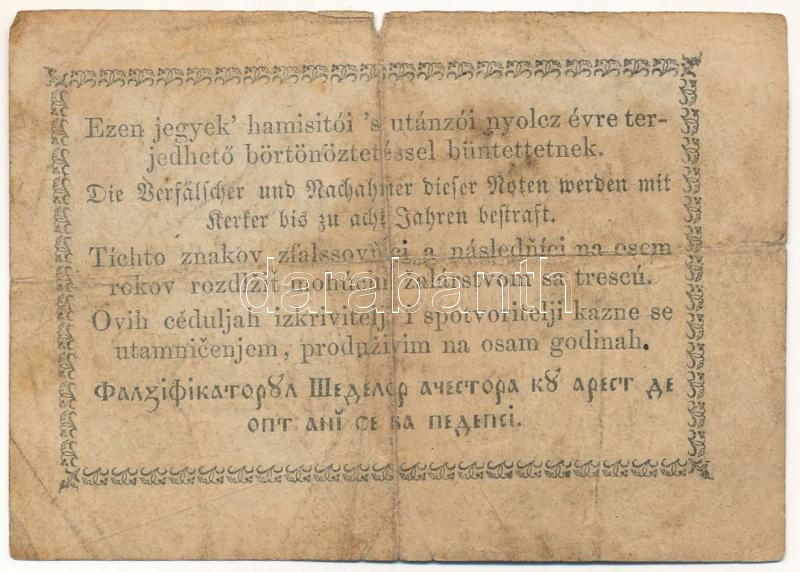 Ezen jegyek' hamisitói 's utánzói nyolcz évre ter-
jedhető börtönöztetéssel büntettetnek.
Die Verfälscher und Nachahmer dieser Noten werden mit
Kerker bis zu acht Jahren bestraft.
Tíchto znakov zfalssovňíci a násleďňíci na osem
rokov rozdĺžiť mohúcim žalárstvom sa trescú.
darabanth
Ovih céduljah izkrivitelji i spotvoritelji kazne se
utamničenjem, produživim na osam godinah.
Фалꙁіфікаторꙋл Шеделор ачестора кꙋ арест де
опт анĭ се ва педепсі.